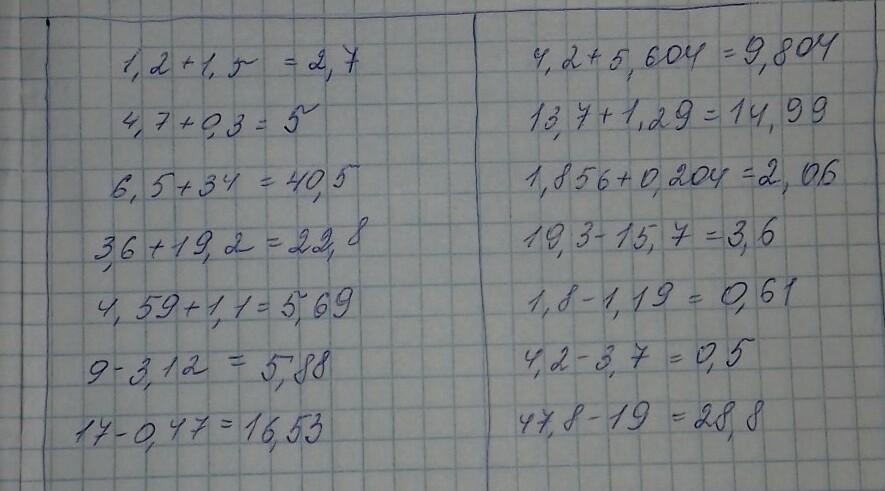 1,2+1,5 = 2,7
4,7+0,3 = 5
6,5+34 = 40,5
3,6+19,2 = 22,8
4,59+1,1 = 5,69
9-3,12 = 5,88
17-0,47 = 16,53
4,2+5,604 = 9,804
13,7+1,29 = 14,99
1,856+0,204 = 2,06
19,3-15,7 = 3,6
1,8-1,19 = 0,61
4,2-3,7 = 0,5
47,8-19 = 28,8